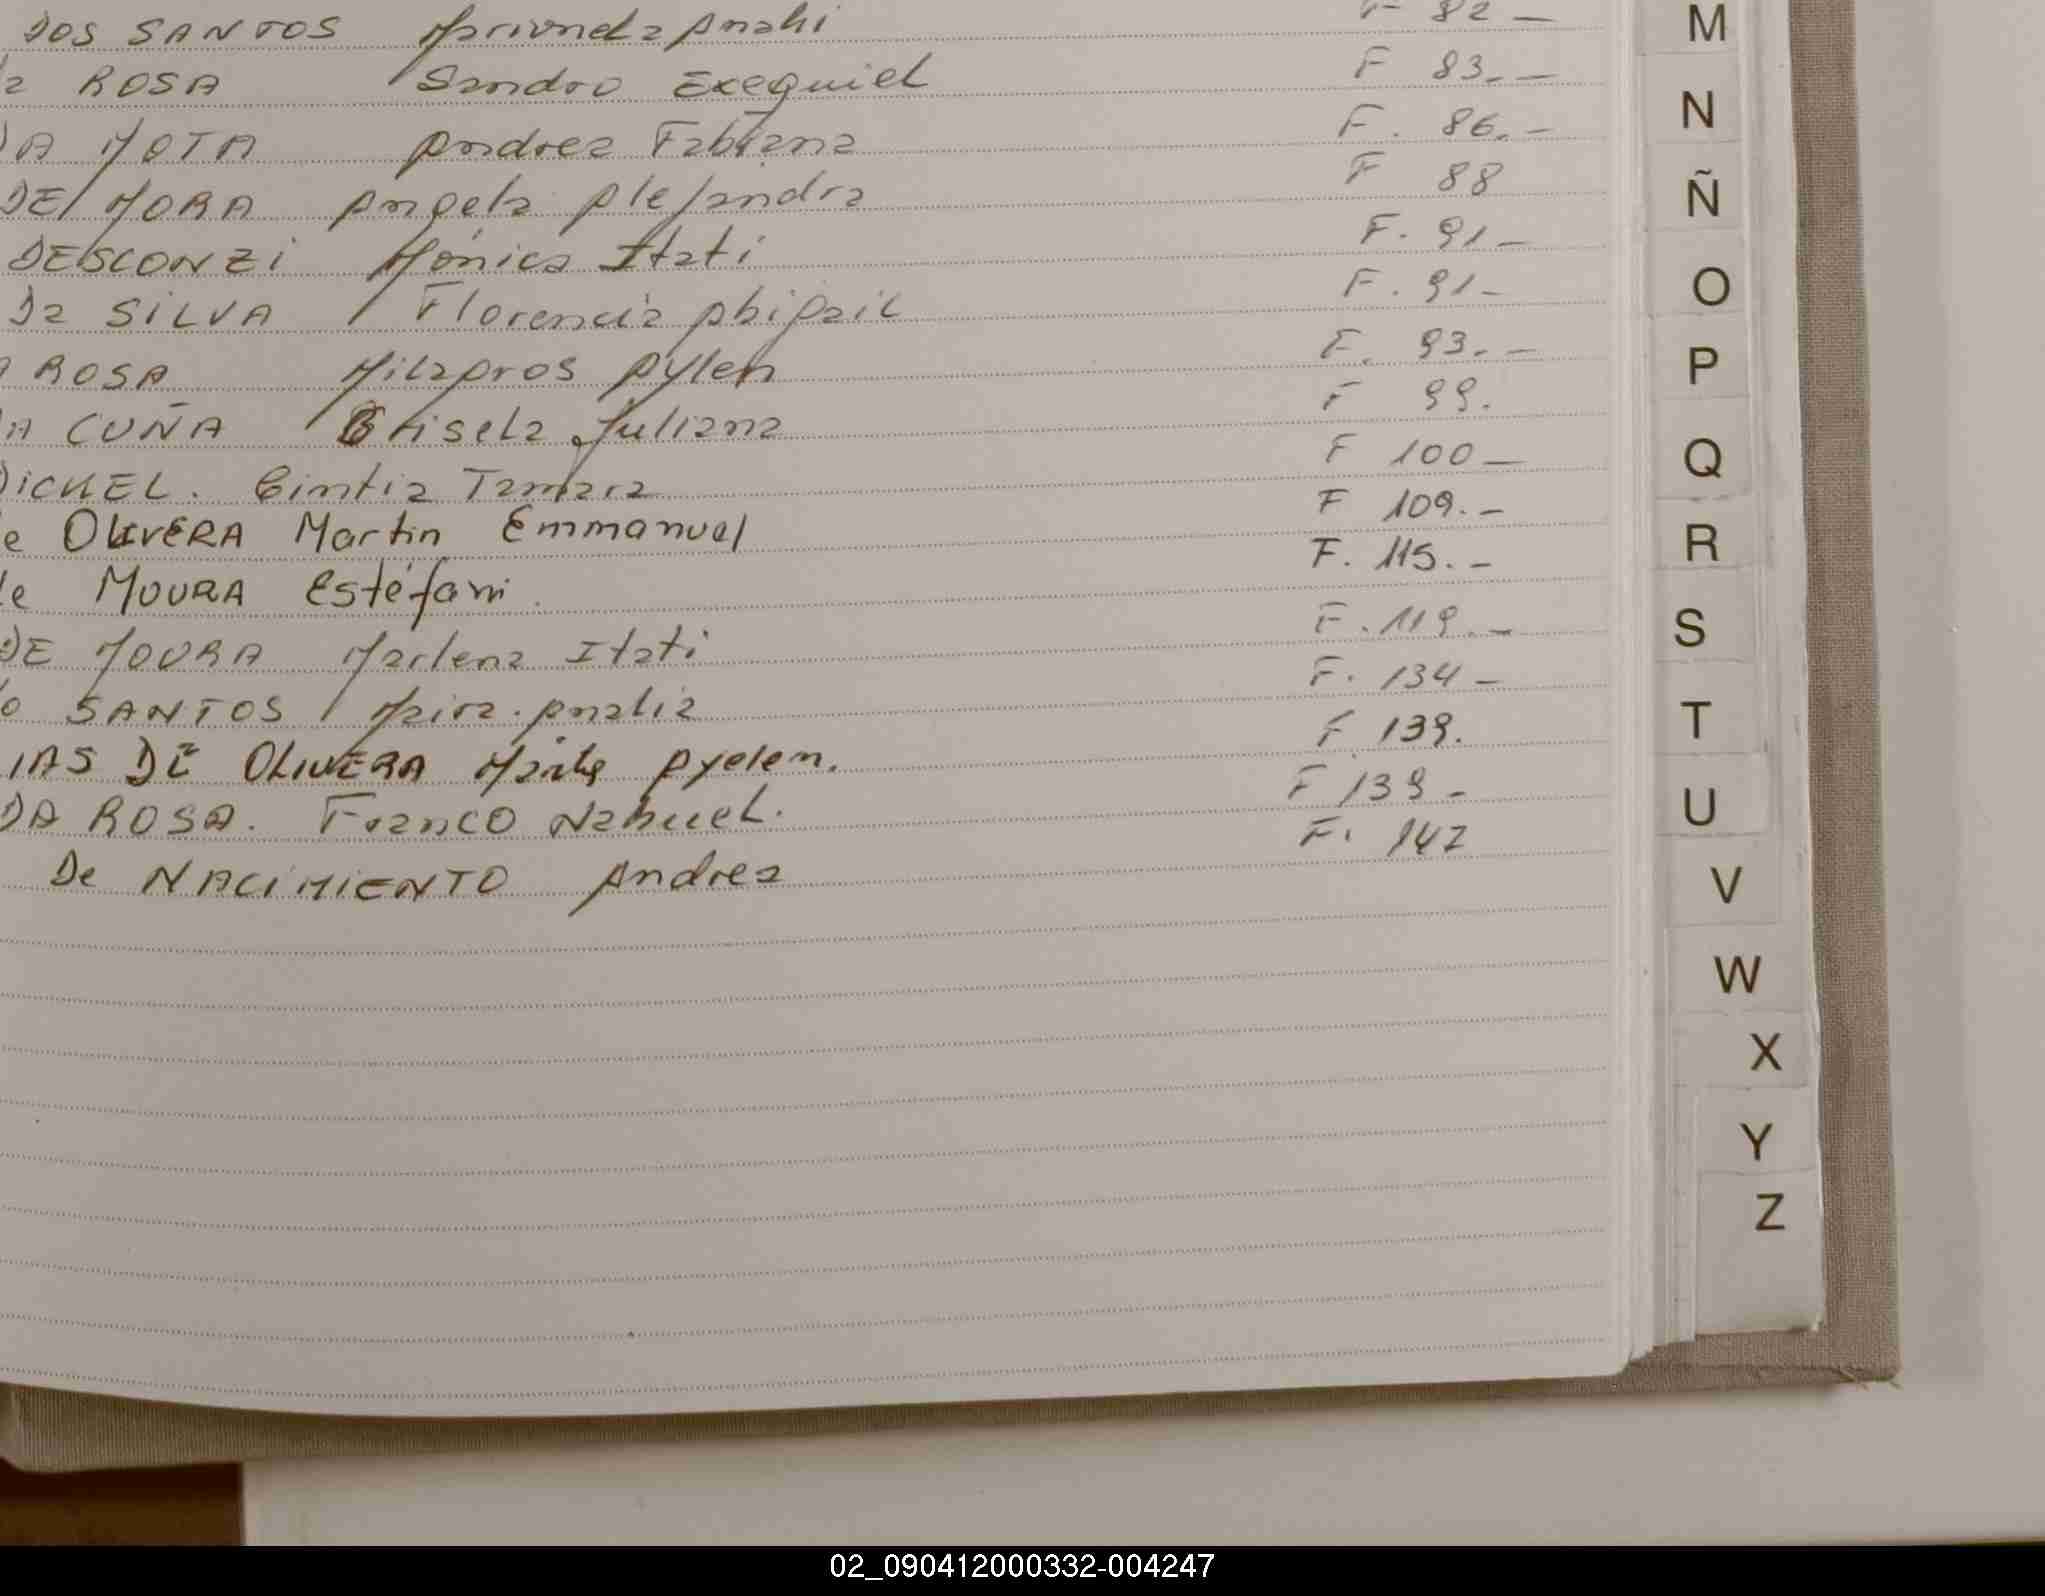 DOS SANTOS Marianela Anahi F 82 -
ROSA Sandro Exequiel F 83. -
DA MOTA Andrea Fabiana F. 86. -
DE MORA Angela Alejandra F 88
DESCONZI Mónica Itati F. 91 -
Da SILVA Florencia Abigail F. 91 -
ROSA Milagros Aylen F. 93. -
CUÑA Grisela Juliana F 99.
DICKEL. Cintia Tamara F 100 -
OLIVERA Martin Emmanuel F 109. -
de MOURA Estéfani. F. 115. -
DE MOURA Marlena Itati F. 119. -
SANTOS Maira Analia F. 134 -
IAS DE OLIVERA Ayelen. F 139.
DA ROSA. Franco Nahuel. F 139 -
De NACIMIENTO Andrea F. 147
M
N
Ñ
O
P
Q
R
S
T
U
V
W
X
Y
Z
02_090412000332-004247